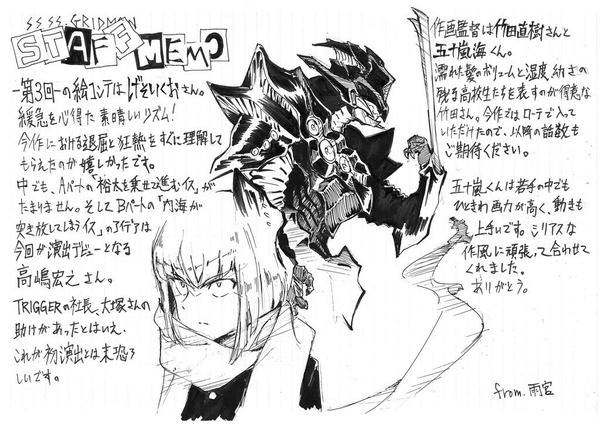 SSSS.GRIDMAN
STAFF MEMO
第3回の絵コンテはげそいくおさん。
緩急を心得た素晴しいリズム!
今作における退屈と狂熱をすぐに理解して
もらえたのが嬉しかったです。
中でも、Aパートの「裕太を乗せて進むイス」が
たまりません。そしてBパートの「内海が
突き放してしまうイス」のアイデアは
今回が演出デビューとなる
高嶋宏之さん。
TRIGGERの社長、大塚さんの
助けがあったとはいえ、
これが初演出とは末恐ろ
しいです。
作画監督は竹田直樹さんと
五十嵐海くん。
濡れた髪のボリュームと湿度、幼さの
残る高校生たちを表すのが得意な
竹田さん。今作ではローテで入って
いただけたので、以降の話数も
ご期待ください。
五十嵐くんは若手の中でも
ひときわ画力が高く、動きも
上手いです。シリアスな
作風に頑張って合わせて
くれました。
ありがとう。
from.雨宮